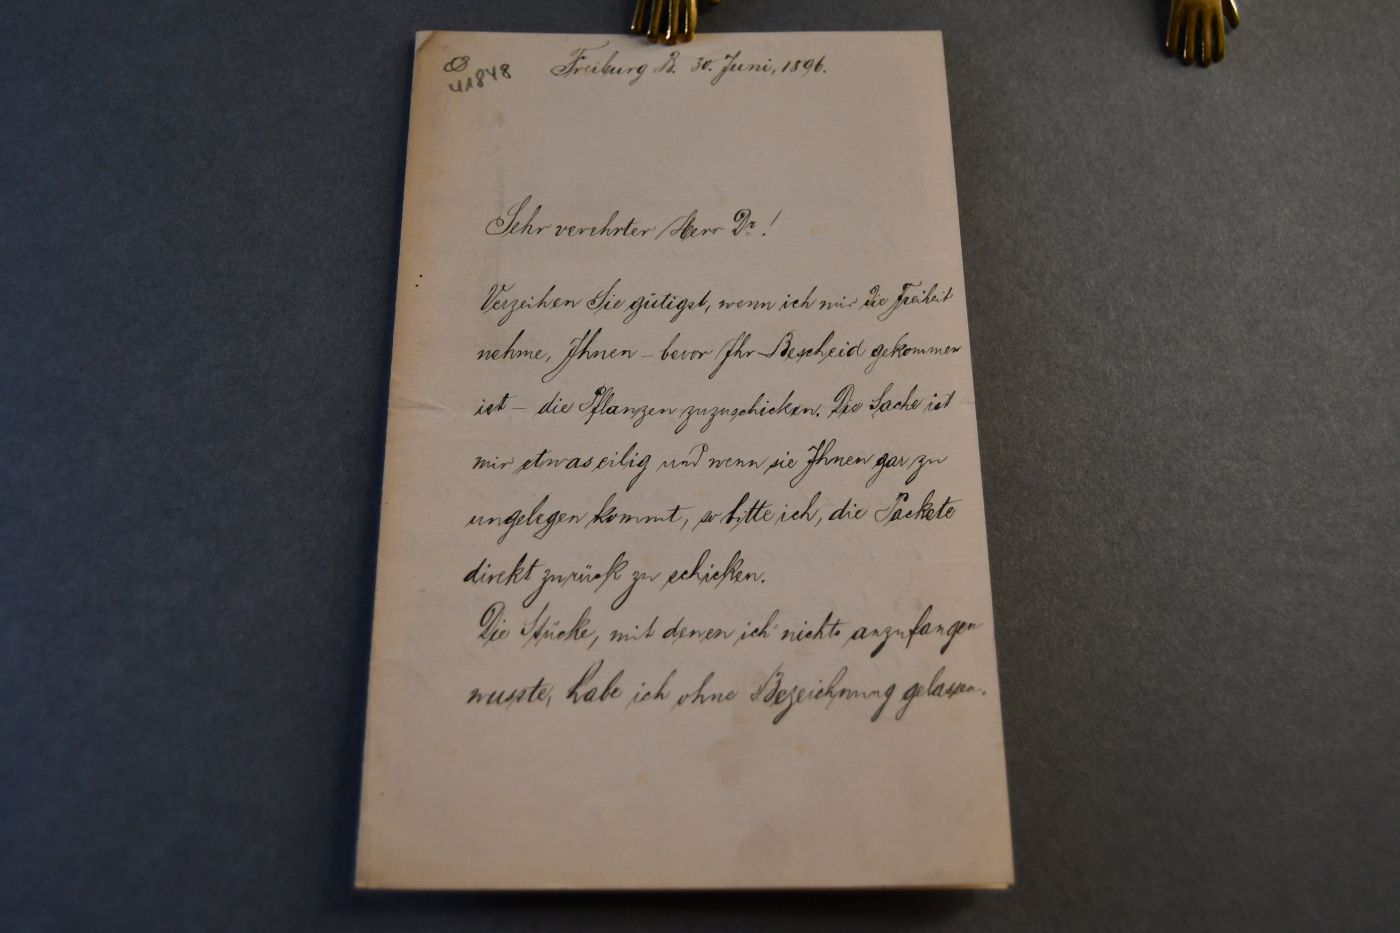 41848
Freiburg B. 30. Juni, 1896.
Sehr verehrter Herr Dr!
Verzeihen Sie gütigst, wenn ich mir die Freiheit
nehme, Ihnen – bevor Ihr Bescheid gekommen
ist – die Pflanzen zuzuschicken. Die Sache ist
mir etwas eilig und wenn sie Ihnen gar zu
ungelegen kommt, so bitte ich, die Packete
direkt zurück zu schicken.
Die Stücke, mit denen ich nichts anzufangen
wusste, habe ich ohne Bezeichnung gelassen.